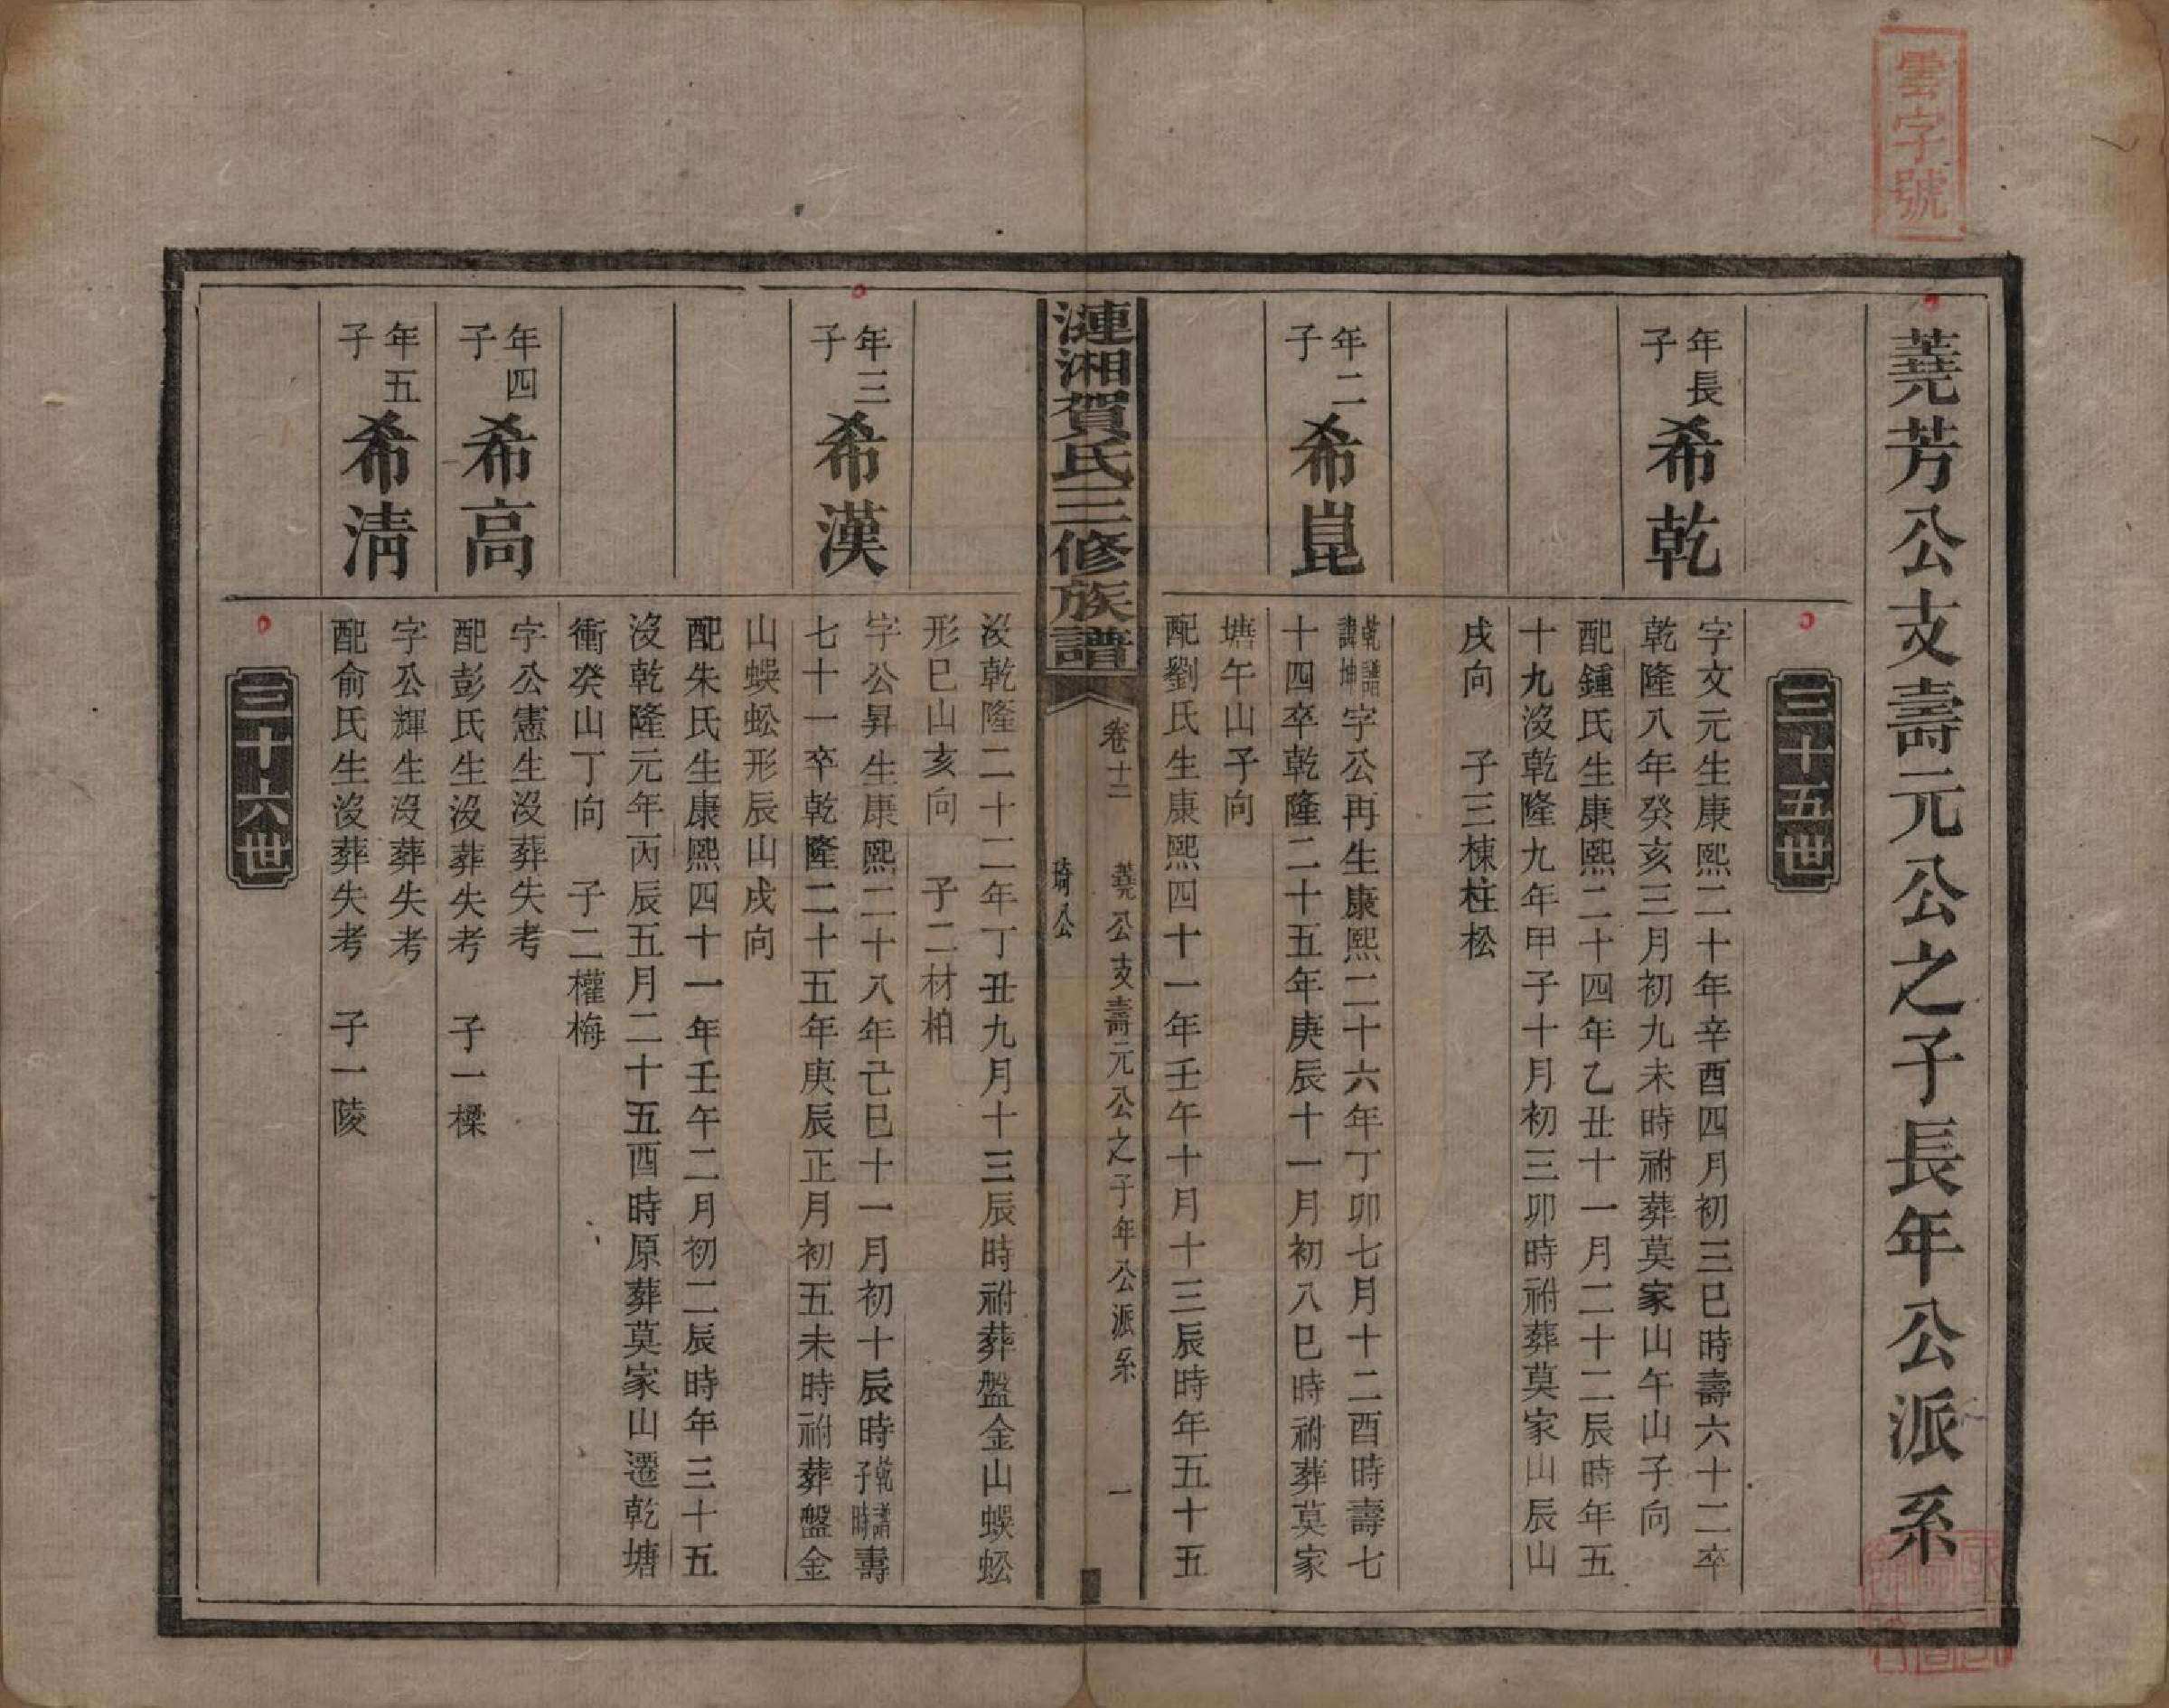 雲字號
蕘芳公支壽元公之子長年公派系
三十五世
年長子 希乾
字文元生康熙二十年辛酉四月初三巳時壽六十二卒
乾隆八年癸亥三月初九未時祔葬莫家山午山子向
配鍾氏生康熙二十四年乙丑十一月二十二辰時年五
十九沒乾隆九年甲子十月初三卯時祔葬莫家山辰山
戌向 子三棟柱松
年二子 希崑
乾譜諱坤字公再生康熙二十六年丁卯七月十二酉時壽七
十四卒乾隆二十五年庚辰十一月初八巳時祔葬莫家
塘午山子向
配劉氏生康熙四十一年壬午十月十三辰時年五十五
漣湘賀氏三修族譜
卷十二
蕘公支壽元公之子年公派系
一
琦公
沒乾隆二十二年丁丑九月十三辰時祔葬盤金山蜈蚣
形巳山亥向 子二材柏
年三子 希漢
字公昇生康熙二十八年己巳十一月初十辰時乾譜子時壽
七十一卒乾隆二十五年庚辰正月初五未時祔葬盤金
山蜈蚣形辰山戌向
配朱氏生康熙四十一年壬午二月初二辰時年三十五
沒乾隆元年丙辰五月二十五酉時原葬莫家山遷乾塘
衝癸山丁向 子二權梅
年四子 希高
字公憲生沒葬失考
配彭氏生沒葬失考 子一樑
年五子 希清
字公輝生沒葬失考
配俞氏生沒葬失考 子一陵
三十六世